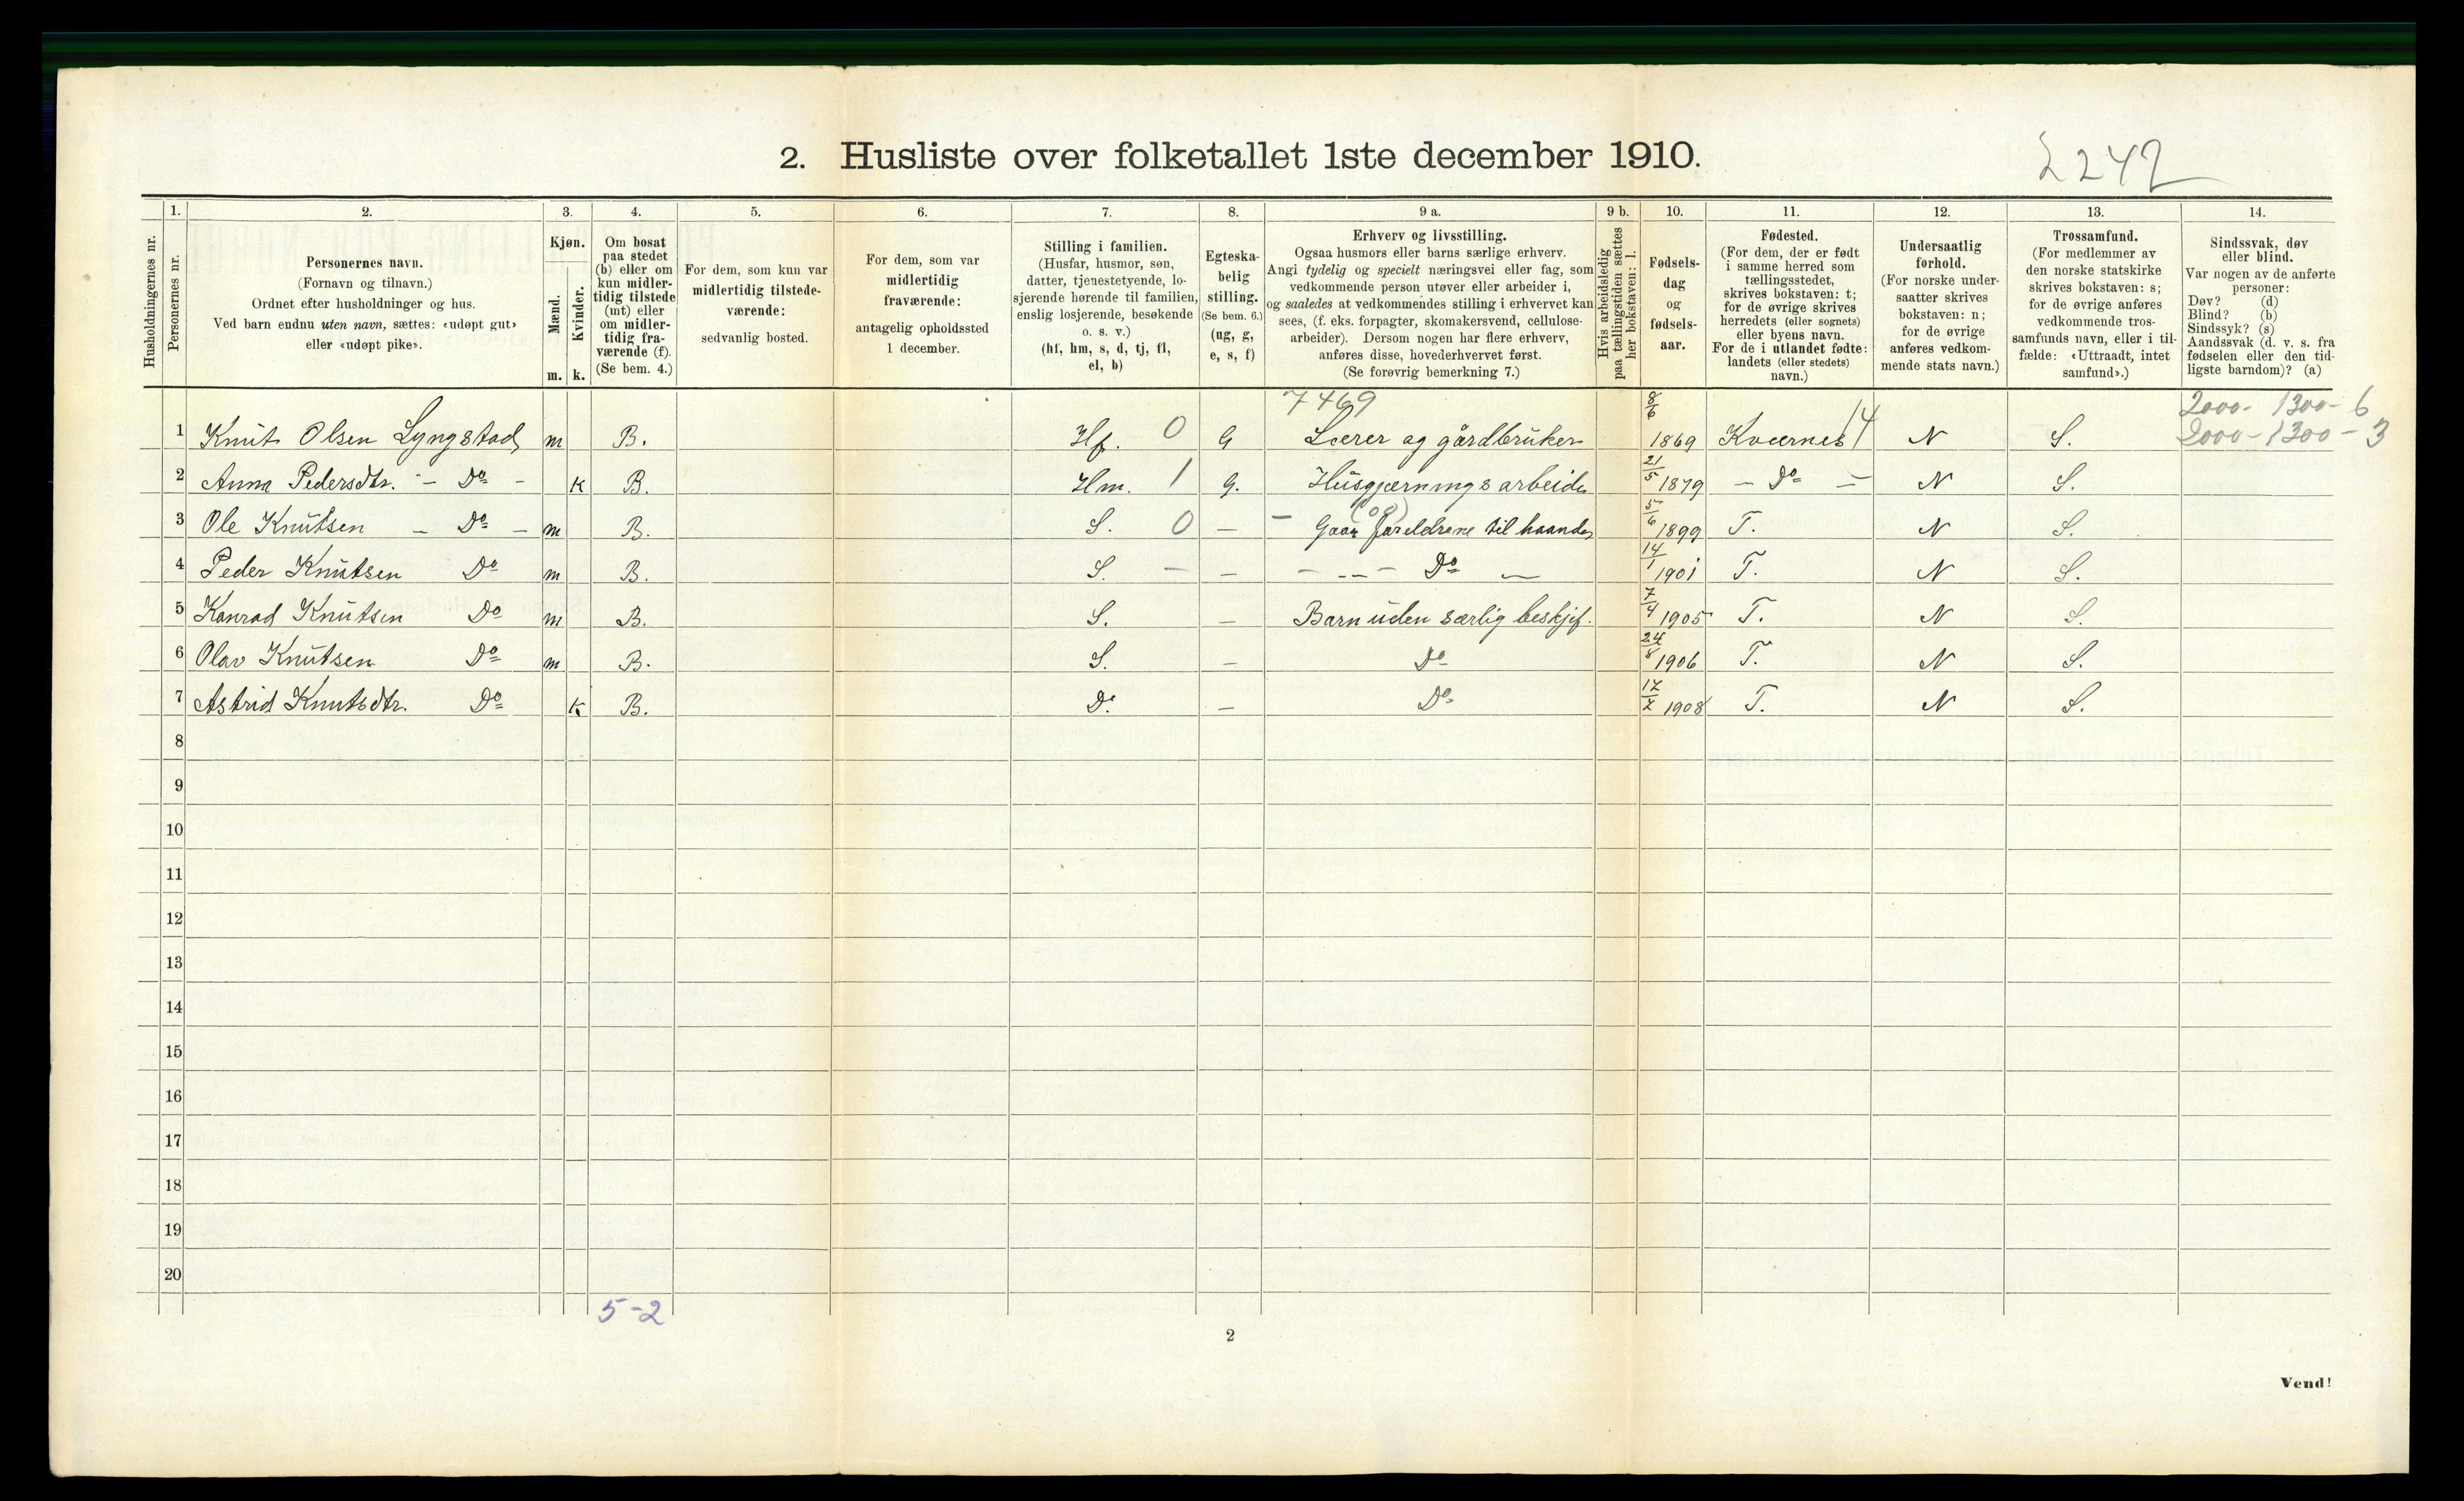 2. Husliste over folketallet 1ste december 1910.
2242
1. 2. 3. 4. 5. 6. 7. 8. 9 a. 9 b. 10. 11. 12. 13. 14.
Husholdningernes nr.
Personernes nr.
Personernes navn.
(Fornavn og tilnavn.)
Ordnet efter husholdninger og hus.
Ved barn endnu uten navn, sættes: «udøpt gut»
eller «udøpt pike».
Kjøn.
Mænd.
Kvinder.
m. k.
Om bosat
paa stedet
(b) eller om
kun midler-
tidig tilstede
(mt) eller
om midler-
tidig fra-
værende (f).
(Se bem. 4.)
For dem, som kun var
midlertidig tilstede-
værende:
sedvanlig bosted.
For dem, som var
midlertidig
fraværende:
antagelig opholdssted
1 december.
Stilling i familien.
(Husfar, husmor, søn,
datter, tjenestetyende, lo-
sjerende hørende til familien,
enslig losjerende, besøkende
o. s. v.)
(hf, hm, s, d, tj, fl,
el, b)
Egteska-
belig
stilling.
(Se bem. 6.)
(ug, g,
e, s, f)
Erhverv og livsstilling.
Ogsaa husmors eller barns særlige erhverv.
Angi tydelig og specielt næringsvei eller fag, som
vedkommende person utøver eller arbeider i,
og saaledes at vedkommendes stilling i erhvervet kan
sees, (f. eks. forpagter, skomakersvend, cellulose-
arbeider). Dersom nogen har flere erhverv,
anføres disse, hovederhvervet først.
(Se forøvrig bemerkning 7.)
Hvis arbeidsledig
paa tællingstiden sættes
her bokstaven: l.
Fødsels-
dag
og
fødsels-
aar.
Fødested.
(For dem, der er født
i samme herred som
tællingsstedet,
skrives bokstaven: t;
for de øvrige skrives
herredets (eller sognets)
eller byens navn.
For de i utlandet fødte:
landets (eller stedets)
navn.)
Undersaatlig
forhold.
(For norske under-
saatter skrives
bokstaven: n;
for de øvrige
anføres vedkom-
mende stats navn.)
Trossamfund.
(For medlemmer av
den norske statskirke
skrives bokstaven: s;
for de øvrige anføres
vedkommende tros-
samfunds navn, eller i til-
fælde: «Uttraadt, intet
samfund».)
Sindssvak, døv
eller blind.
Var nogen av de anførte
personer:
Døv? (d)
Blind? (b)
Sindssyk? (s)
Aandssvak (d. v. s. fra
fødselen eller den tid-
ligste barndom)? (a)
7469 8/6 2000- 1300- 6
1 Knut Olsen Lyngstad m B. Hf. 0 G Lærer og gårdbruker 1869 Kvernes 14 N S. 2000-1300-3
2 Anna Pedersdtr. - Do - k B. Hm. 1 G. Husgjærningsarbeide 21/5 1879 - Do - N S.
3 Ole Knutsen - Do - m B. S. 0 - - Gaar foreldrene til haande 5/6 1899 T. N S.
4 Peder Knutsen Do m B. S. - - - -- - Do - 14/1 1901 T. N S.
5 Konrad Knutsen Do m B. S. - Barn uden særlig beskjef. 7/4 1905 T. N S.
6 Olav Knutsen Do m B. S. - Do 24/8 1906 T. N S.
7 Astrid Knutsdtr. Do k B. D. - Do 1908 T. N S.
8
9
10
11
12
13
14
15
16
17
18
19
20
5-2
2
Vend!